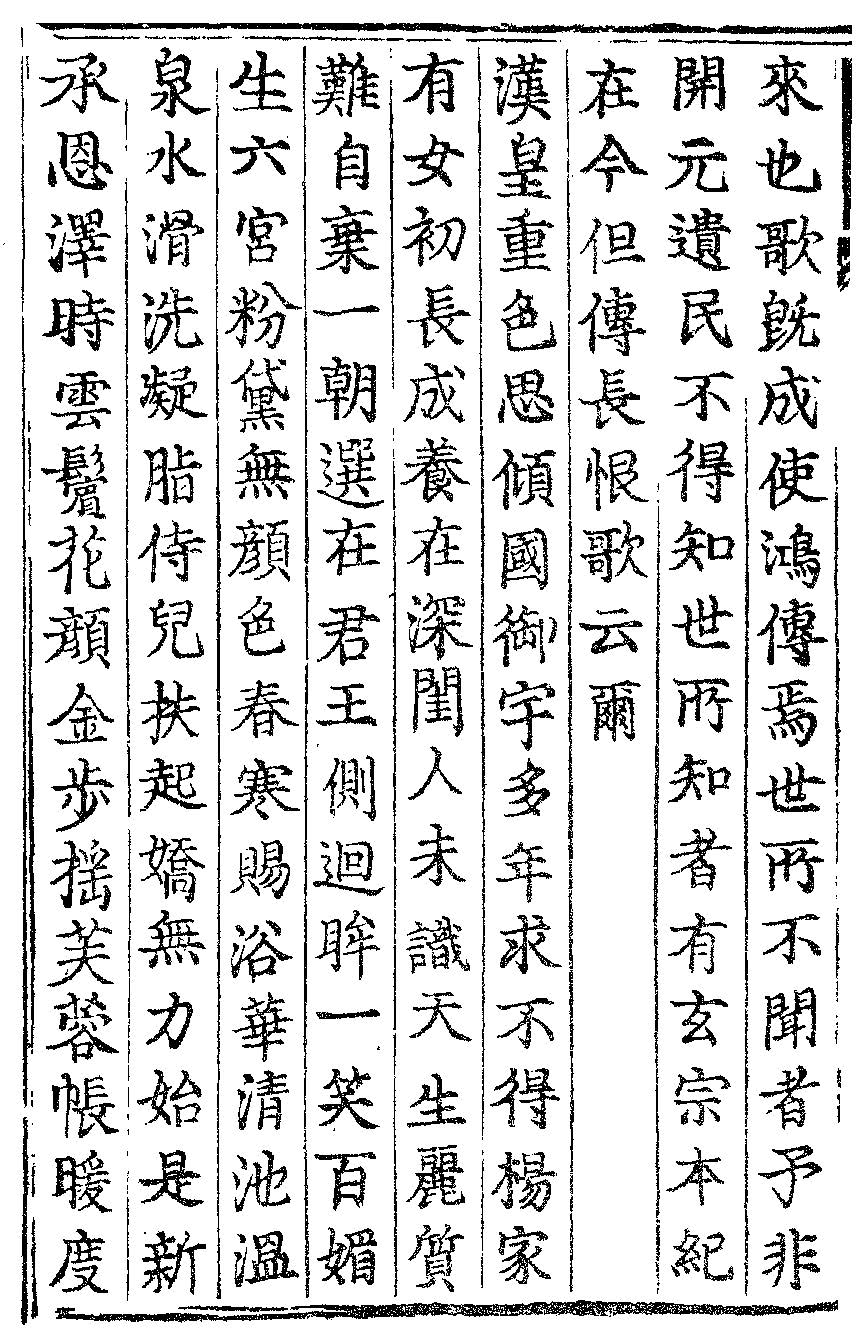 來也歌既成使鴻傳焉世所不聞者予非
開元遺民不得知世所知者有玄宗本紀
在今但傳長恨歌云爾
漢皇重色思傾國御宇多年求不得楊家
有女初長成養在深閨人未識天生麗質
難自棄一朝選在君王側迴眸一笑百媚
生六宮粉黛無顏色春寒賜浴華清池溫
泉水滑洗凝脂侍兒扶起嬌無力始是新
承恩澤時雲鬢花顏金步搖芙蓉帳暖度